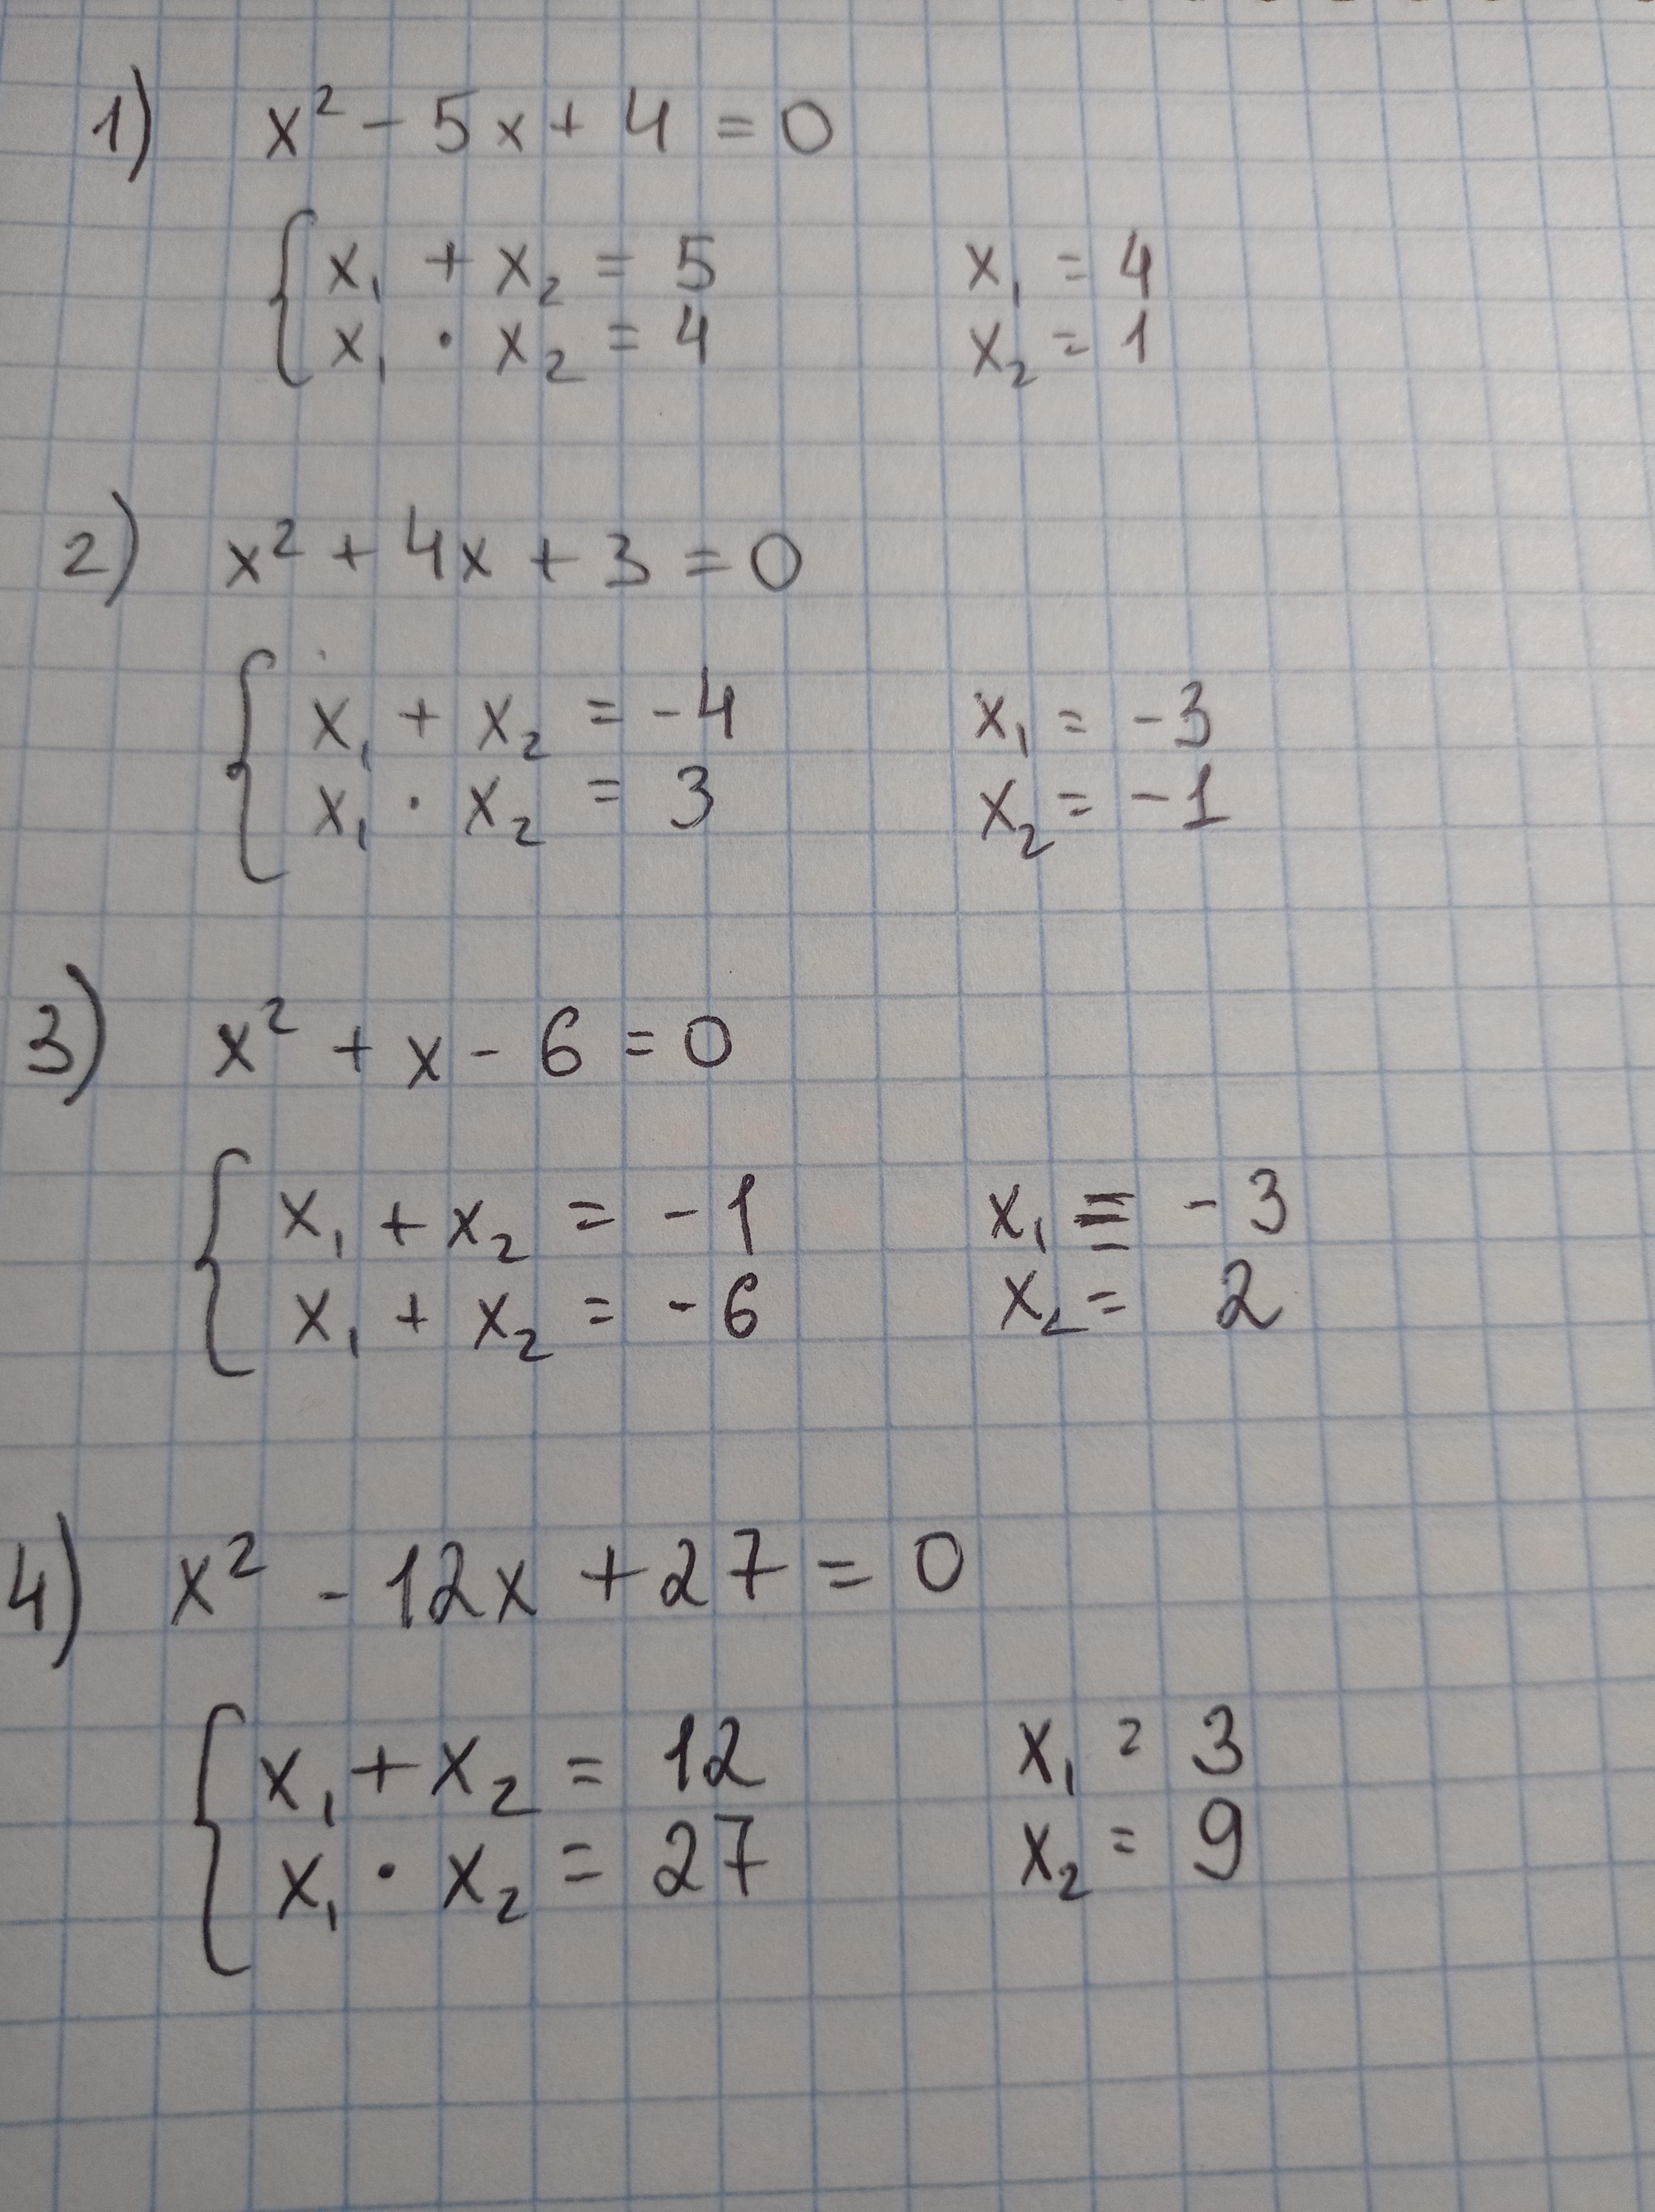 1) x² - 5x + 4 = 0
x₁ + x₂ = 5 x₁ = 4
x₁ · x₂ = 4 x₂ = 1
2) x² + 4x + 3 = 0
x₁ + x₂ = -4 x₁ = -3
x₁ · x₂ = 3 x₂ = -1
3) x² + x - 6 = 0
x₁ + x₂ = -1 x₁ = -3
x₁ + x₂ = -6 x₂ = 2
4) x² - 12x + 27 = 0
x₁ + x₂ = 12 x₁ = 3
x₁ · x₂ = 27 x₂ = 9